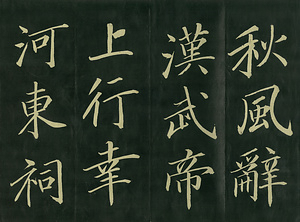 秋風辭
漢武帝
上行幸
河東祠